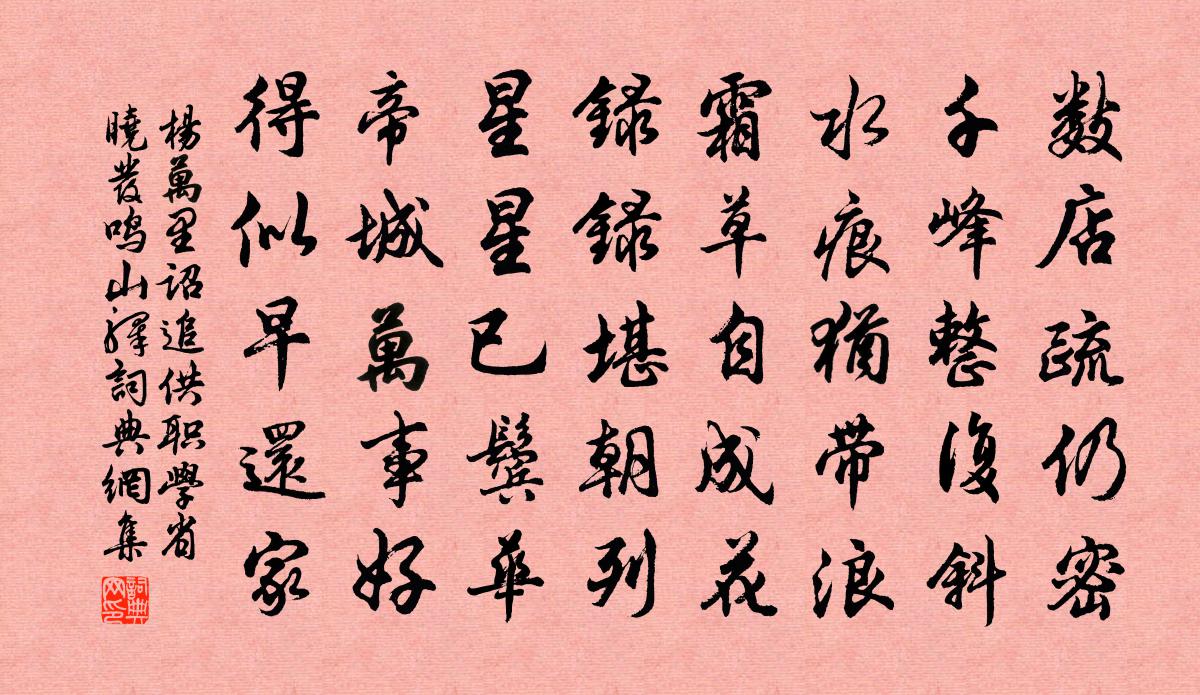 數店疏仍密
千峰整復斜
水痕猶带浪
霜草自成花
録録堪朝列
星星已鬢華
帝城萬事好
得似早還家
楊萬里詔追供职學省
曉發鸣山驛詞典網集
詞典网印